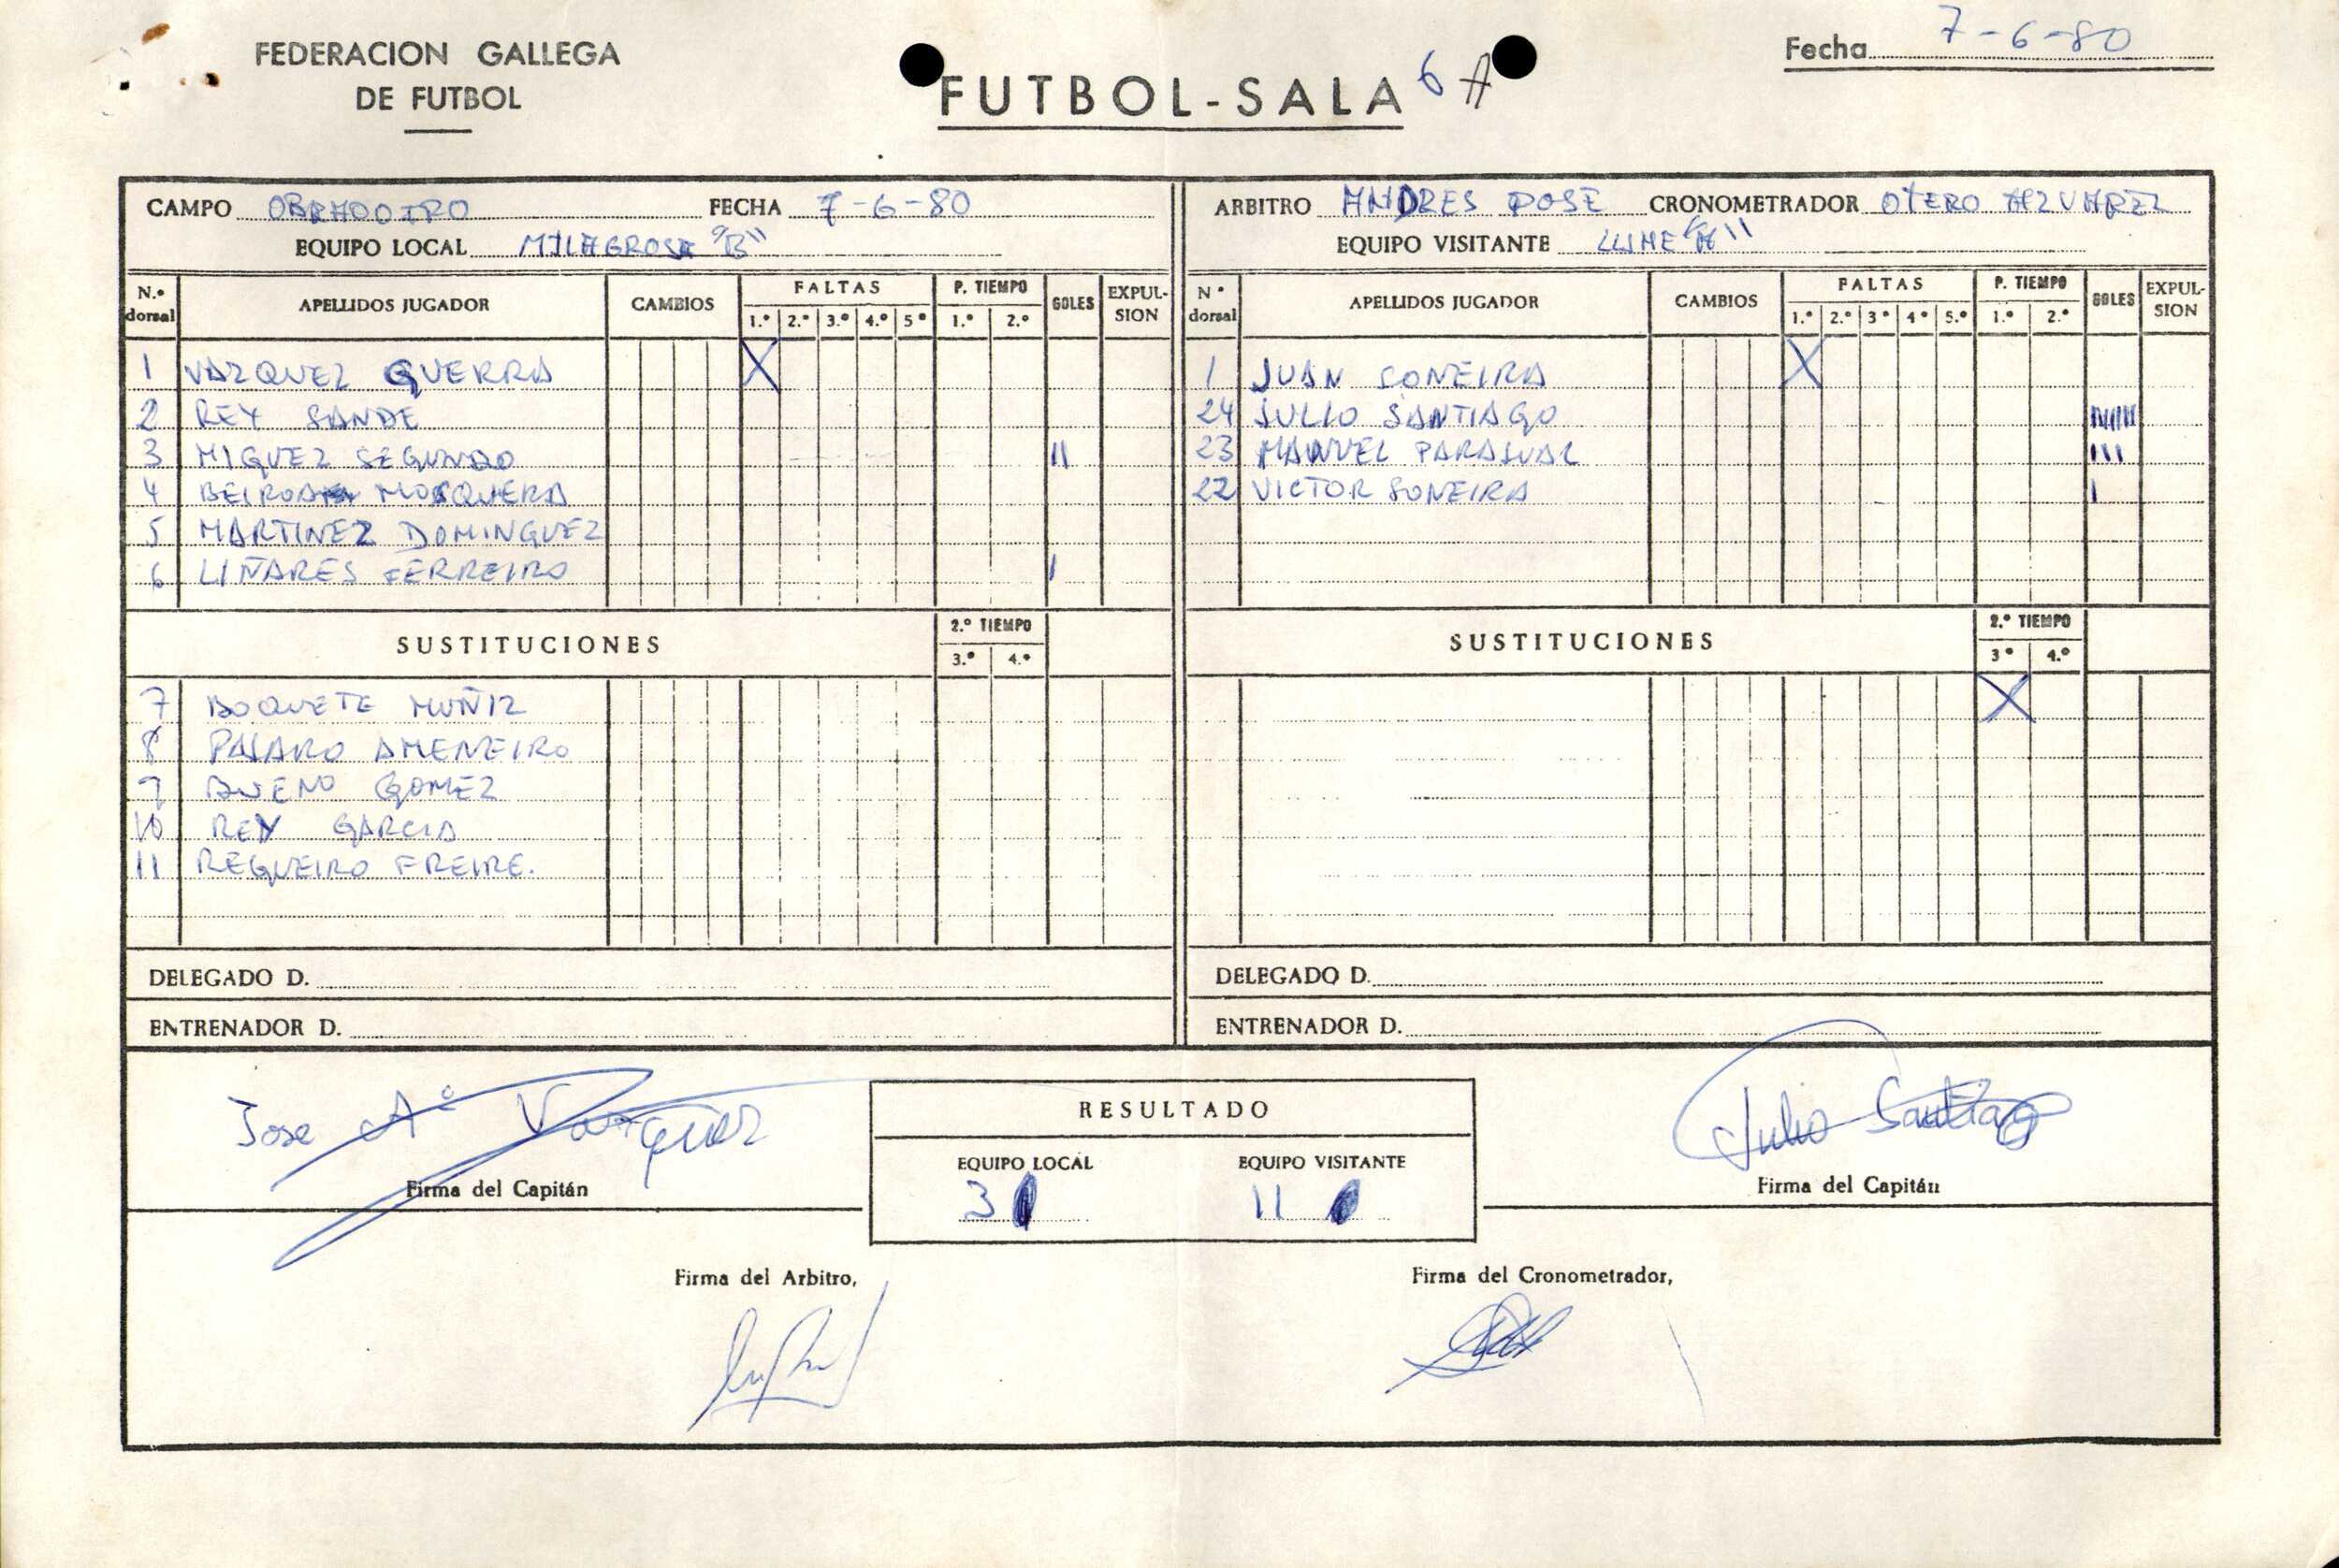 FEDERACION GALLEGA
DE FUTBOL
FUTBOL-SALA 6 A
Fecha 7-6-80
CAMPO OBRADOIRO FECHA 7-6-80
EQUIPO LOCAL MILAGROSA "B"
N.º dorsal APELLIDOS JUGADOR CAMBIOS FALTAS 1.º 2.º 3.º 4.º 5º P. TIEMPO 1.º 2.º GOLES EXPUL-SION
1 VAZQUEZ GUERRA X
2 REY SANDE
3 MIGUEZ SEGUNDO II
4 BEIROA MOSQUERA
5 MARTINEZ DOMINGUEZ
6 LIÑARES FERREIRO I
SUSTITUCIONES 2.º TIEMPO 3.º 4.º
7 BOQUETE MUÑIZ
8 PAJARO AMENEIRO
9 BUENO GOMEZ
10 REY GARCIA
11 REGUEIRO FREIRE.
DELEGADO D.
ENTRENADOR D.
ARBITRO ANDRES POSE CRONOMETRADOR OTERO ALVAREZ
EQUIPO VISITANTE LUME "A"
Nº dorsal APELLIDOS JUGADOR CAMBIOS FALTAS 1.º 2.º 3º 4º 5.º P. TIEMPO 1.º 2.º GOLES EXPUL-SION
1 JUAN SONEIRA X
24 JULIO SANTIAGO
23 MANUEL III
22 VICTOR SONEIRA I
SUSTITUCIONES 2.º TIEMPO 3º 4.º
X
DELEGADO D.
ENTRENADOR D.
Jose Aº Vazquez
Firma del Capitán
RESULTADO
EQUIPO LOCAL EQUIPO VISITANTE
3 11
Julio Santiago
Firma del Capitán
Firma del Arbitro,
Firma del Cronometrador,